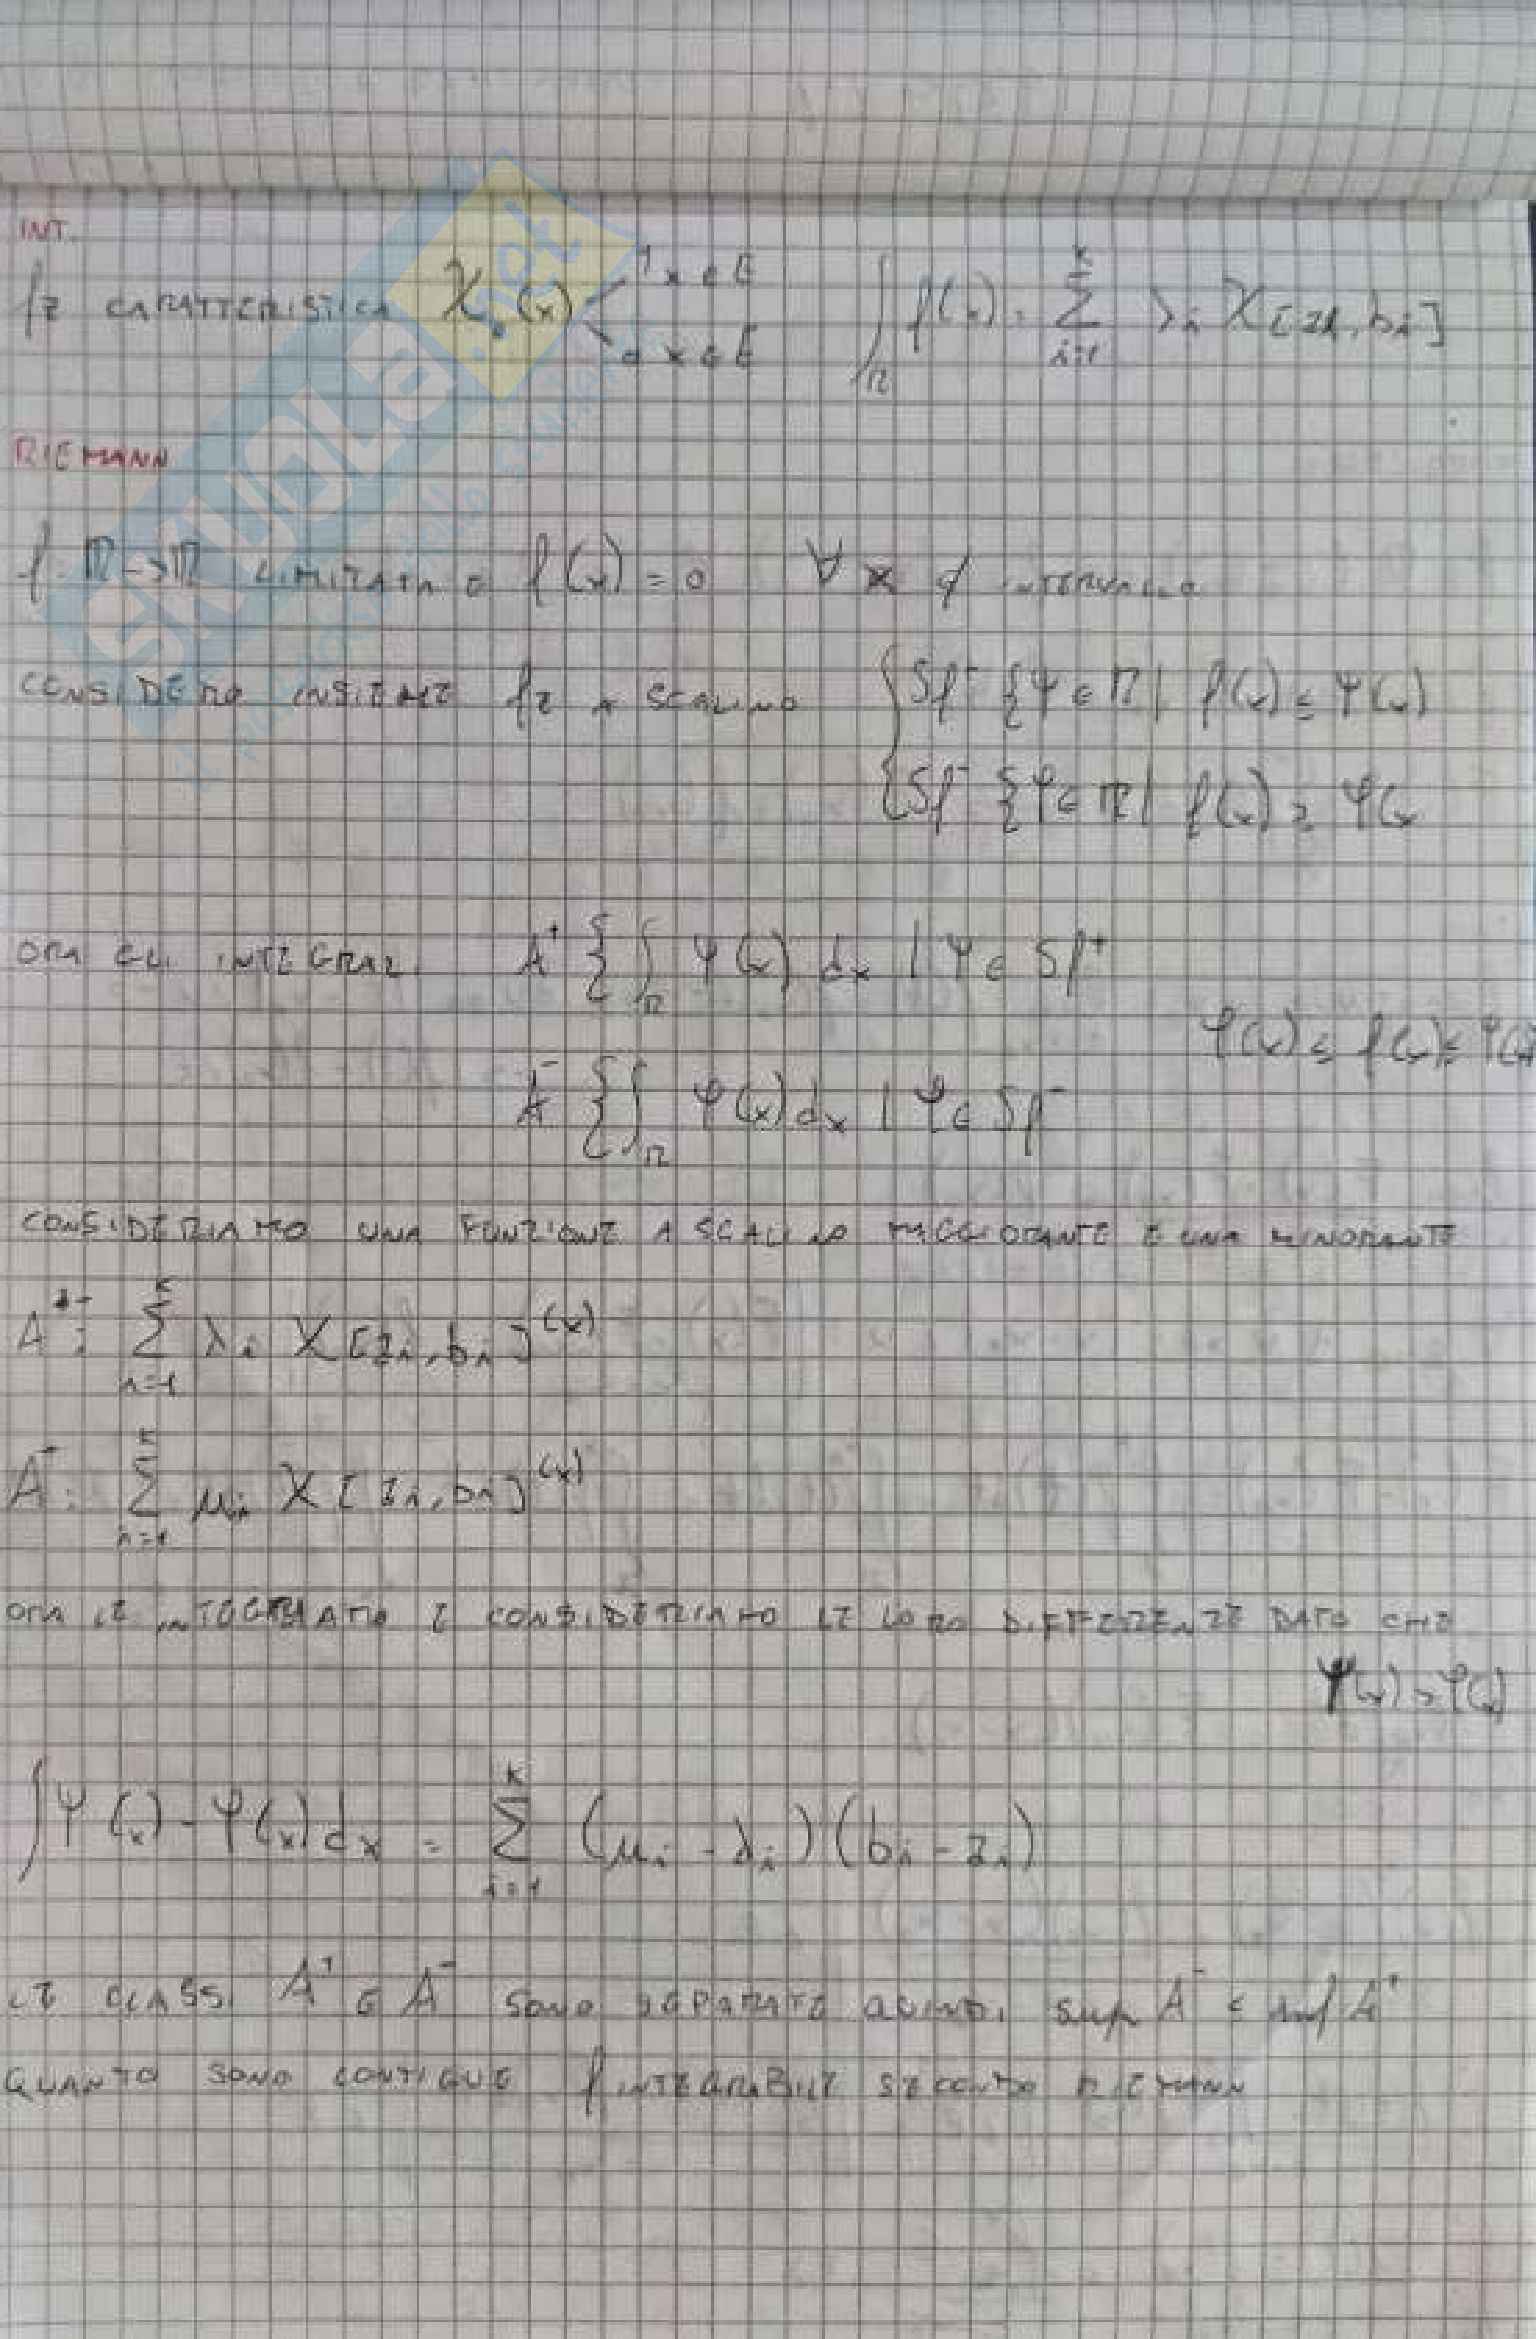 INT.
fz CARATTERISTICA χ.(x) 1 x ∈ E
0 x ∈ E
∫_R f(x) = Σ_{i=1}^{K} λi χ[ai, bi]
RIEMANN
f: R→R LIMITATA e f(x) = 0 ∀ x ∉ INTERVALLO
CONSIDERO INSIEME fz A SCALINO { Sf⁻ {Ψ ∈ R | f(x) ≤ Ψ(x)
{ Sf⁻ {φ ∈ R | f(x) ≥ φ(x
ORA GLI INTEGRALI A⁺ { ∫_R Ψ(x) dx | Ψ ∈ Sf⁺
φ(x) ≤ f(x) ≤ Ψ(x)
A⁻ { ∫_R φ(x) dx | φ ∈ Sf⁻
CONSIDERIAMO UNA FUNZIONE A SCALINO MAGGIORANTE E UNA MINORANTE
A⁺: Σ_{i=1}^{K} λi χ[ai, bi](x)
A⁻: Σ_{i=1}^{K} μi χ[ai, bi](x)
ORA LE INTEGRIAMO E CONSIDERIAMO LE LORO DIFFERENZE DATO CHE
Ψ(x) > φ(x)
∫ Ψ(x) - φ(x) dx = Σ_{i=1}^{K} (μi - λi)(bi - ai)
LE CLASSI A⁺ e A⁻ SONO SEPARATE QUINDI sup A⁻ ≤ inf A⁺
QUANTO SONO CONTIGUE f INTEGRABILE SECONDO RIEMANN
SKUOLA.net